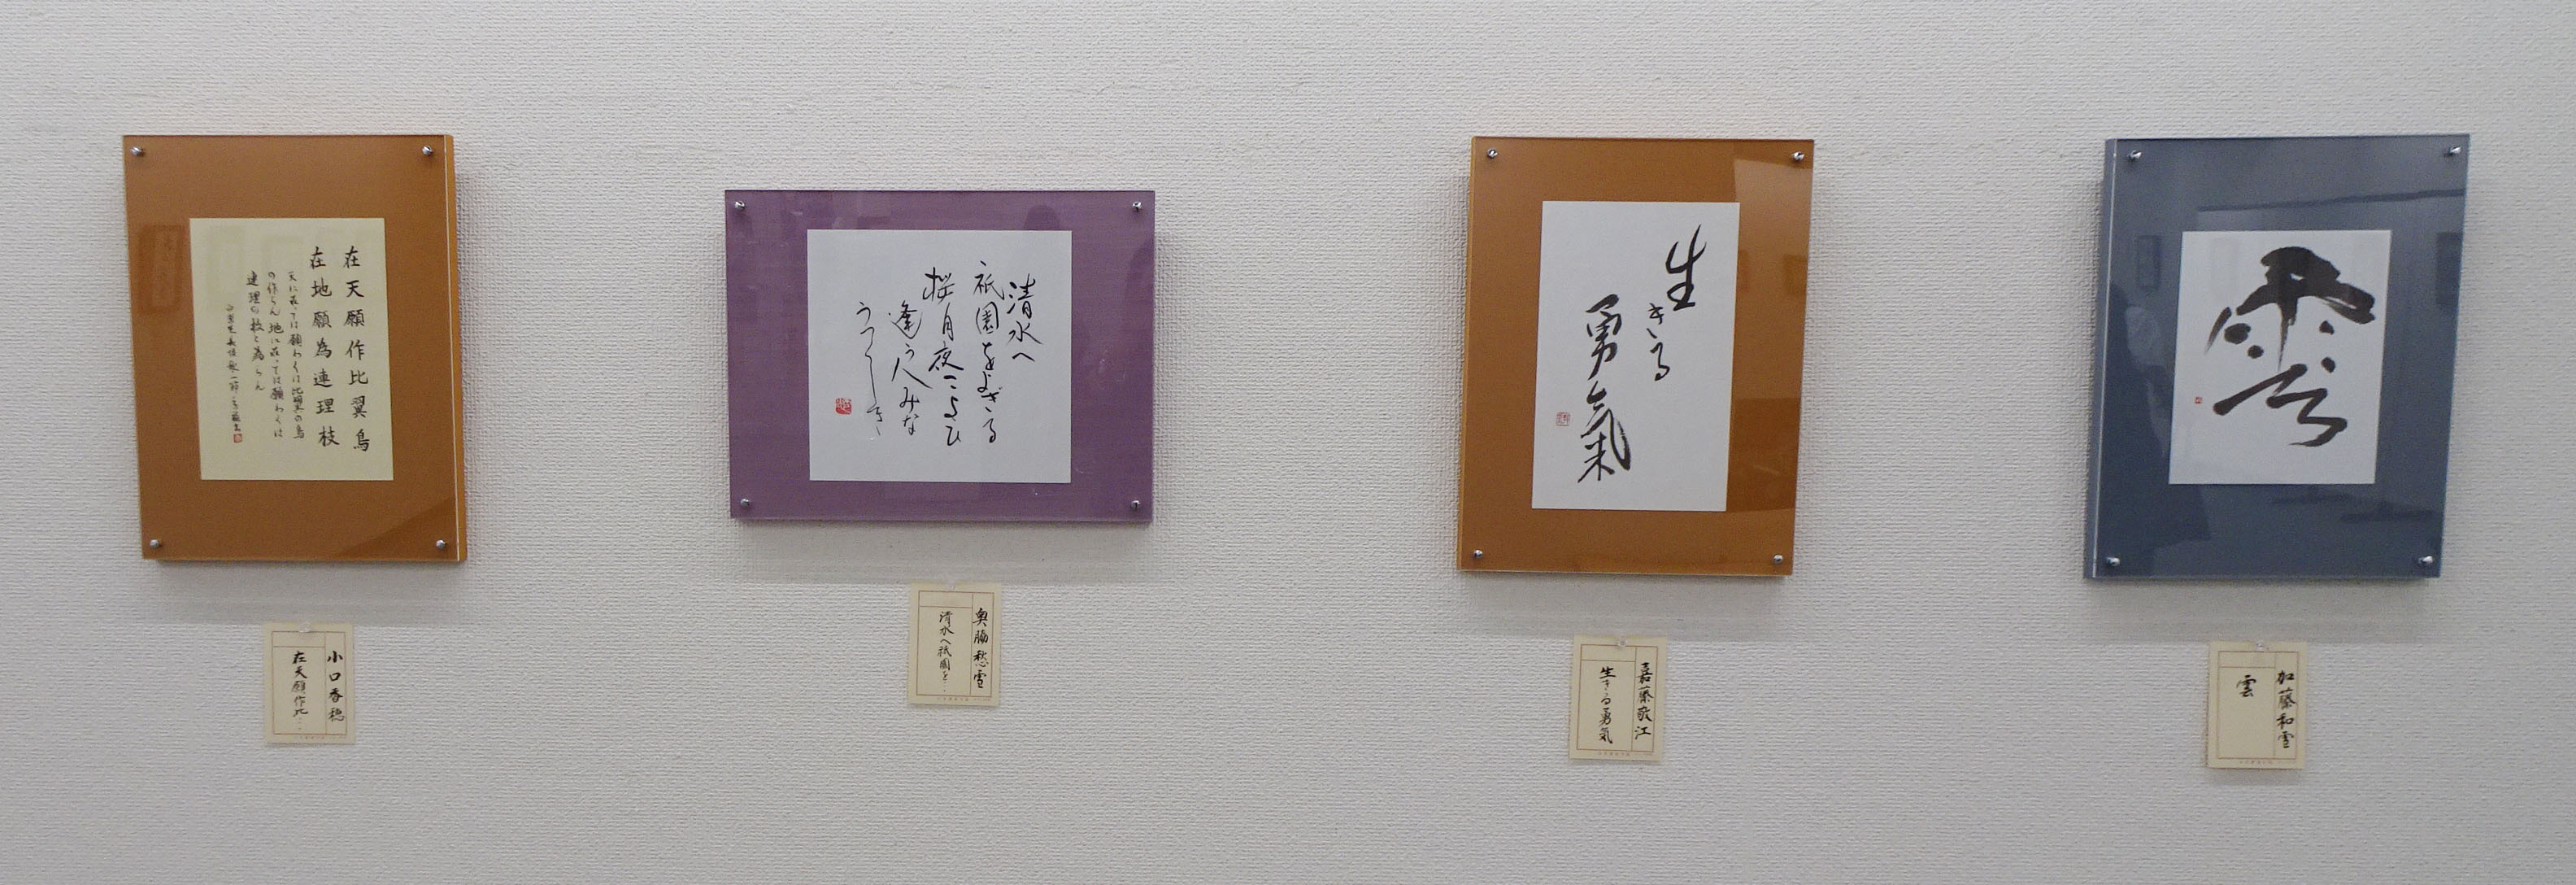 在天願作比翼鳥
在地願為連理枝
天に在っては願わくは比翼の鳥
と作らん地に在っては願わくは
連理の枝と為らん
小口香穂
在天願作比…
清水へ
祇園をよぎる
桜月夜こよひ
逢う人みな
うつくしき
奥脇愁雪
清水へ祇園を…
生きる
勇氣
嘉藤敬江
生きる勇氣
雲
加藤和雪
雲